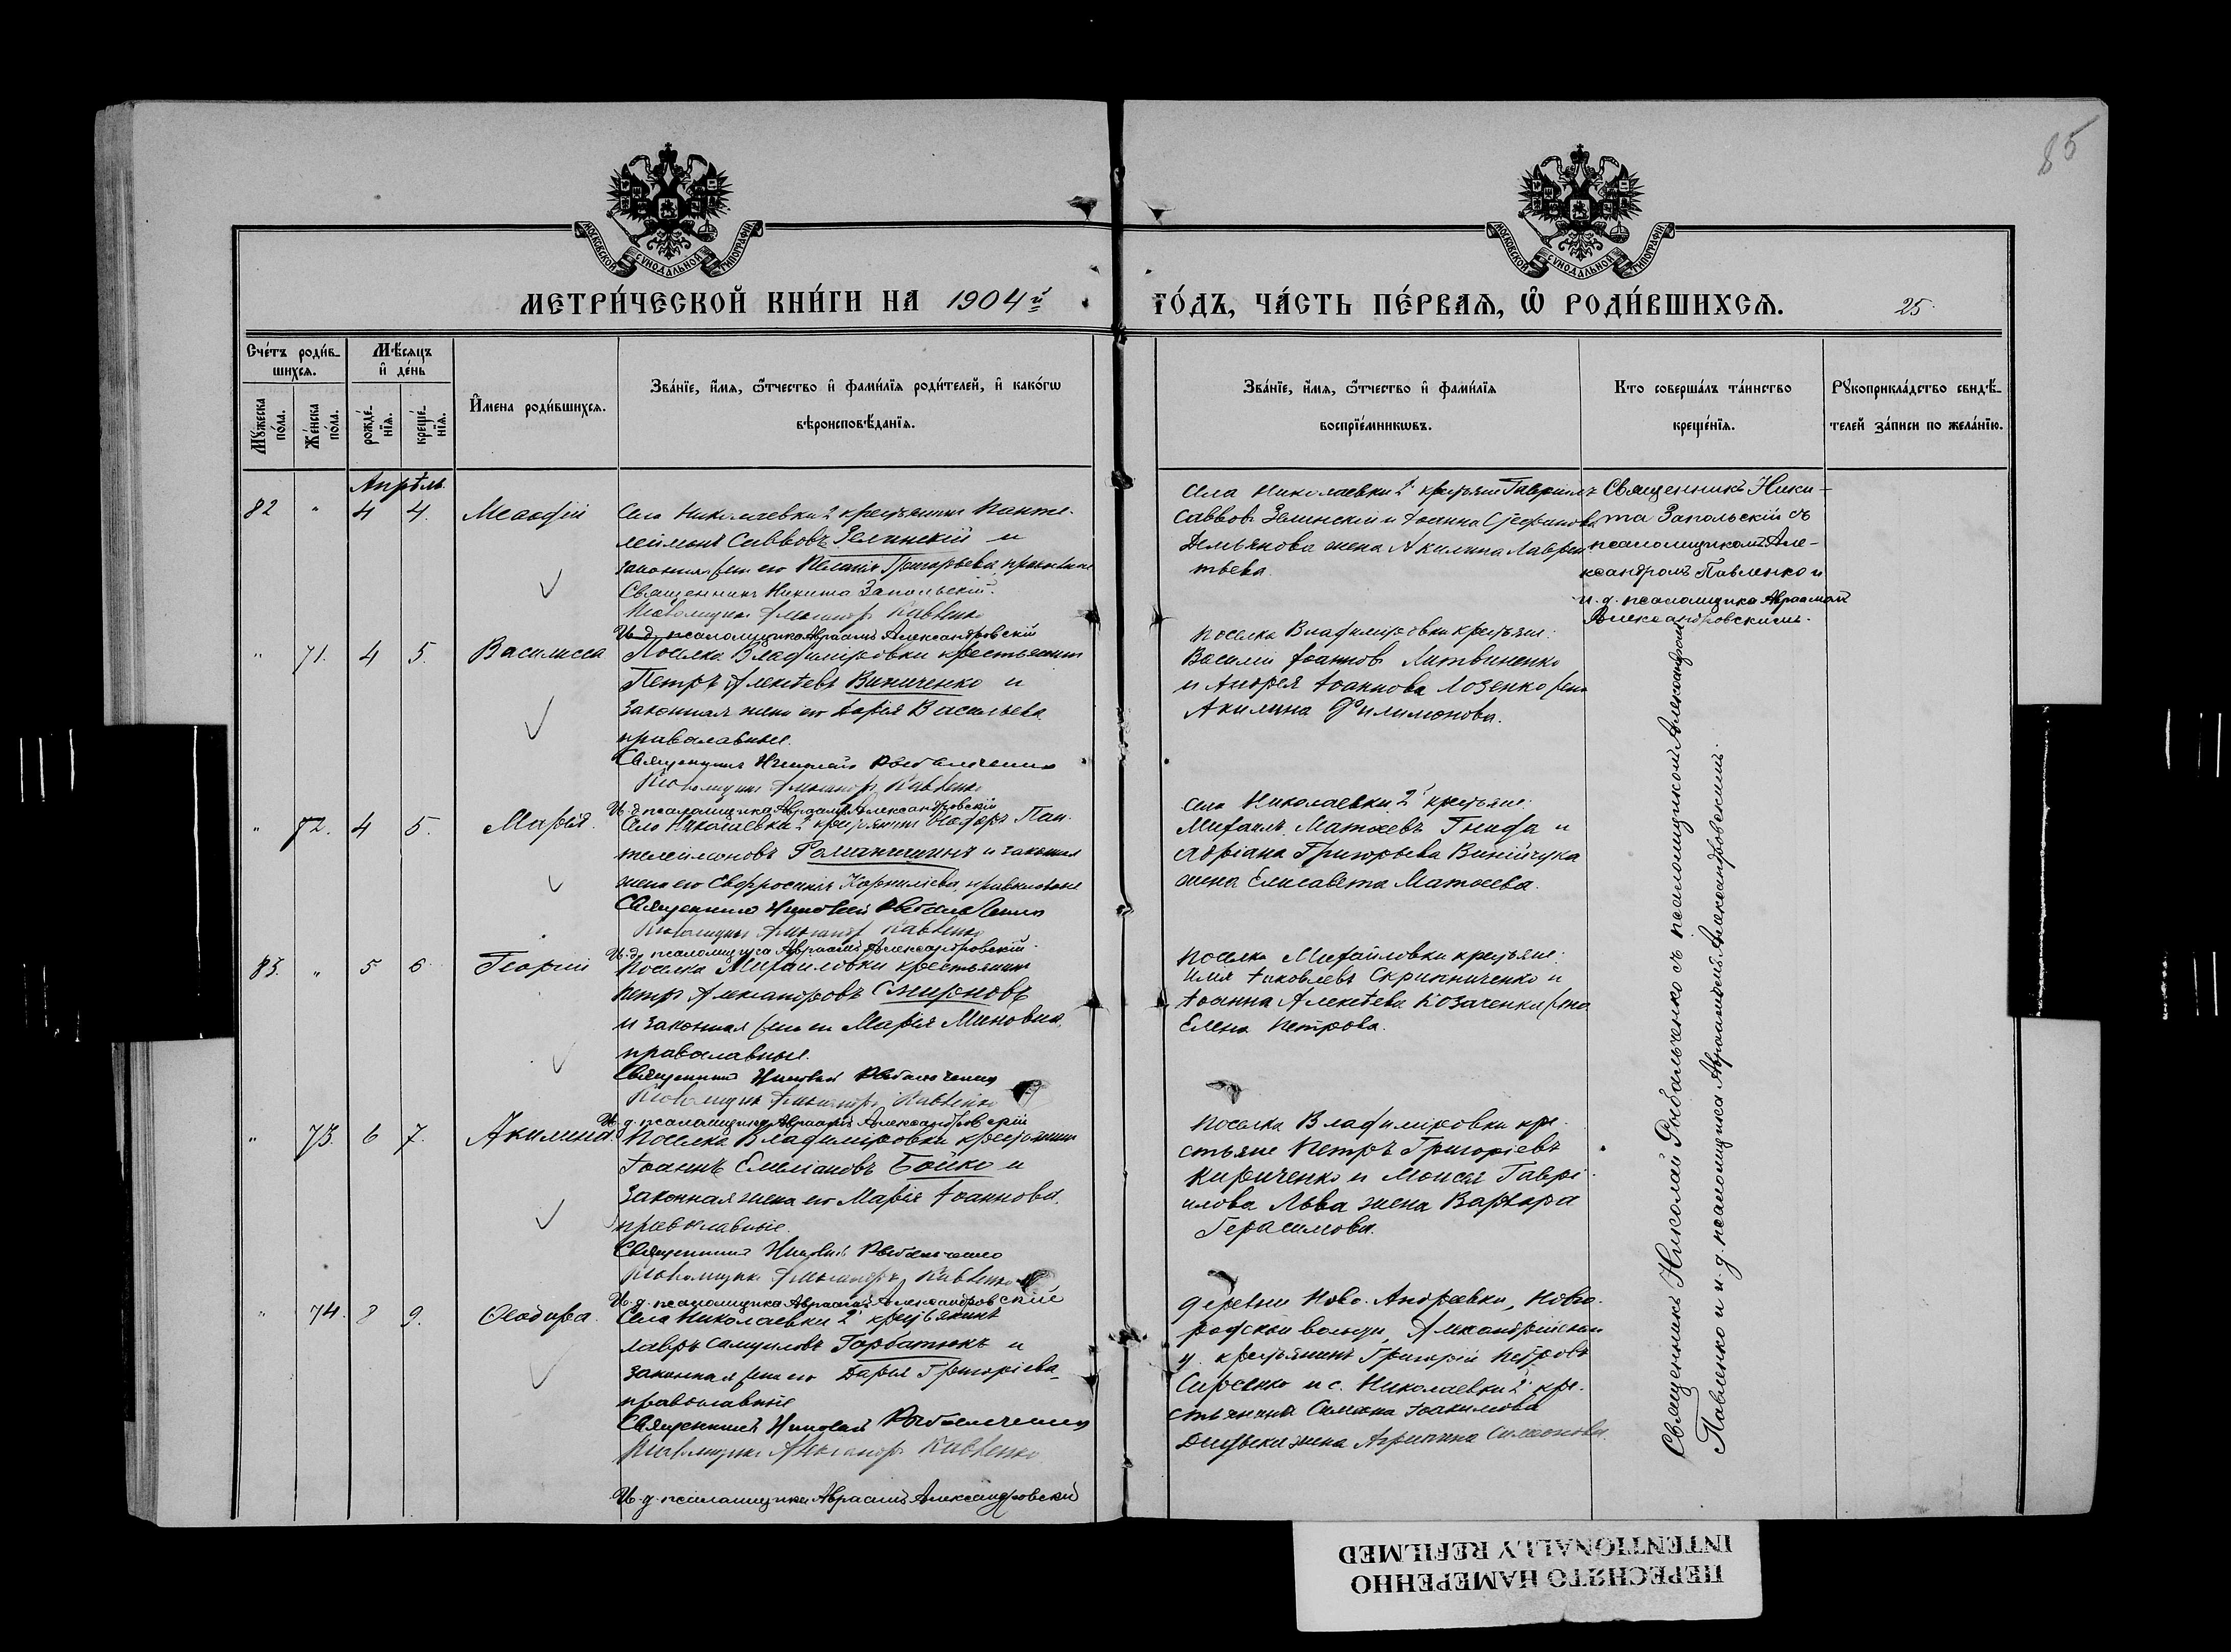 85
МОСКОВСКОЙ СѴНОДАЛЬНОЙ ТИПОГРАФІИ
МОСКОВСКОЙ СѴНОДАЛЬНОЙ ТИПОГРАФІИ
МЕТРИ́ЧЕСКОЙ КНИ́ГИ НА 1904й
ГО́ДЪ, ЧА́СТЬ ПЕ́РВАѦ, Ѡ РОДИ́ВШИХСѦ.
25.
Сче́тъ роди́в-
шихсѧ.
Мѣ́сѧцъ
и҆ де́нь
Мꙋ́жеска
по́ла.
Же́нска
по́ла.
рожде́-
нїѧ.
креще́-
нїѧ.
И҆мена роди́вшихсѧ.
Зва́нїе, и҆́мѧ, ѻ҆́тчество и҆ фами́лїѧ роди́телей, и҆ како́гѡ
вѣроисповѣ́данїѧ.
Зва́нїе, и҆́мѧ, ѻ҆́тчество и҆ фами́лїѧ
воспрїе́мникѡвъ.
Кто соверша́лъ та́инство
креще́нїѧ.
Рꙋкоприкла́дство свидѣ́-
телей за́писи по жела́нїю.
Апрѣль.
82 " 4 4.
Села Николаевки 2 крестьянинъ Панте-
леймонъ Саввовъ Зелинскій и
законная жена его Пелагія Григорьева, православные
Священникъ Никита Запольскій.
Псаломщикъ Александръ Павленко
И. д. псаломщика Авраамъ Александровскій
Села Николаевки 2й крестьяне Гавріилъ
Саввовъ Зелинскій и Іоанна Стефанова
Демьянова жена Акилина Лаврен
тьева.
Священникъ Ники-
та Запольскій съ
псаломщикомъ Але-
ксандромъ Павленко и
и. д. псаломщика Авраамомъ
Александровскимъ.
" 71. 4 5. Василисса
Поселка Владиміровки крестьянинъ
Петръ Алексѣевъ Виниченко и
законная жена его Марія Васильева
православные.
Священникъ Николай Рыбальченко
Псаломщикъ Александръ Павленко
И. д. псаломщика Авраамъ Александровскій
Поселка Владиміровки крестьяне:
Василій Іоанновъ Литвиненко
и Андрея Іоаннова Лозенко жена
Акилина Филимонова.
" 72. 4 5. Марія.
Села Николаевки 2й крестьянинъ Пан-
телеймоновъ и законная
жена его Евфросинія Корниліева, православные
Священникъ Николай Рыбальченко
Псаломщикъ Александръ Павленко
И. д. псаломщика Авраамъ Александровскій
Села Николаевки 2й крестьяне:
Михаилъ Матѳеевъ Гнида и
Адріана Григорьева Винійчука
жена Елисавета Матѳеева.
83. " 5 6 Георгій
Поселка Михайловки крестьянинъ
Петръ Александровъ Смирновъ
и законная жена его Марія Миновна,
православные.
Священникъ Николай Рыбальченко
Псаломщикъ Александръ Павленко
И. д. псаломщика Авраамъ Александровскій
Поселка Михайловки крестьяне:
Илія Іаковлевъ Скрипниченко и
Іоанна Алексѣева Козаченки жена
Елена Петрова.
" 73. 6 7. Акилина.
Поселка Владиміровки крестьянинъ
Іоаннъ Емеліановъ Бойко и
законная жена его Марія Іоаннова,
православные.
Священникъ Николай Рыбальченко
Псаломщикъ Александръ Павленко
И. д. псаломщика Авраамъ Александровскій
Поселка Владиміровки кре-
стьяне Петръ Григоріевъ
Кириченко и Моисея Гаврі-
илова Льва жена Варвара
Герасимова.
" 74. 8 9.
Села Николаевки 2й крестьянинъ
Лавръ Самуиловъ Горбатюкъ и
законная жена его Дарья Григоріева,
православные
Священникъ Николай Рыбальченко
Псаломщикъ Александръ Павленко
И. д. псаломщика Авраамъ Александровскій
Деревни Ново-Андреевки, Новго-
родской волости, Александрійскаго
у. крестьянинъ Григорій Петровъ
Сиренко и с. Николаевки 2й кре-
стьянина Симеона Іоакимова
жена Агрипина Симеонова.
Священникъ Николай Рыбальченко съ псаломщикомъ Александромъ
Павленко и и. д. псаломщика Авраамомъ Александровскимъ.
ПЕРЕСНЯТО НАМЕРЕННО
INTENTIONALLY REFILMED